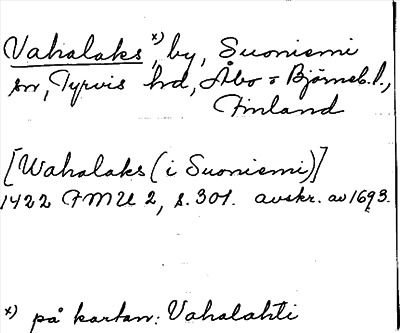 Vahalaks x), by, Suoniemi
sn, Tyrvis hd, Åbo o Björneb. l.,
Finland
[Wahalaks (i Suoniemi)]
1422 FMU 2, s. 301. avskr. av 1693.
x) på kartan: Vahalahti